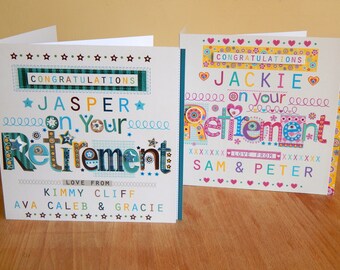 CONGRATULATIONS
JASPER
on Your
Retirement
LOVE FROM
KIMMY CLIFF
AVA CALEB & GRACIE
CONGRATULATIONS
JACKIE
on your
Retirement
LOVE FROM
XXXXXXX XXXXXX
SAM & PETER